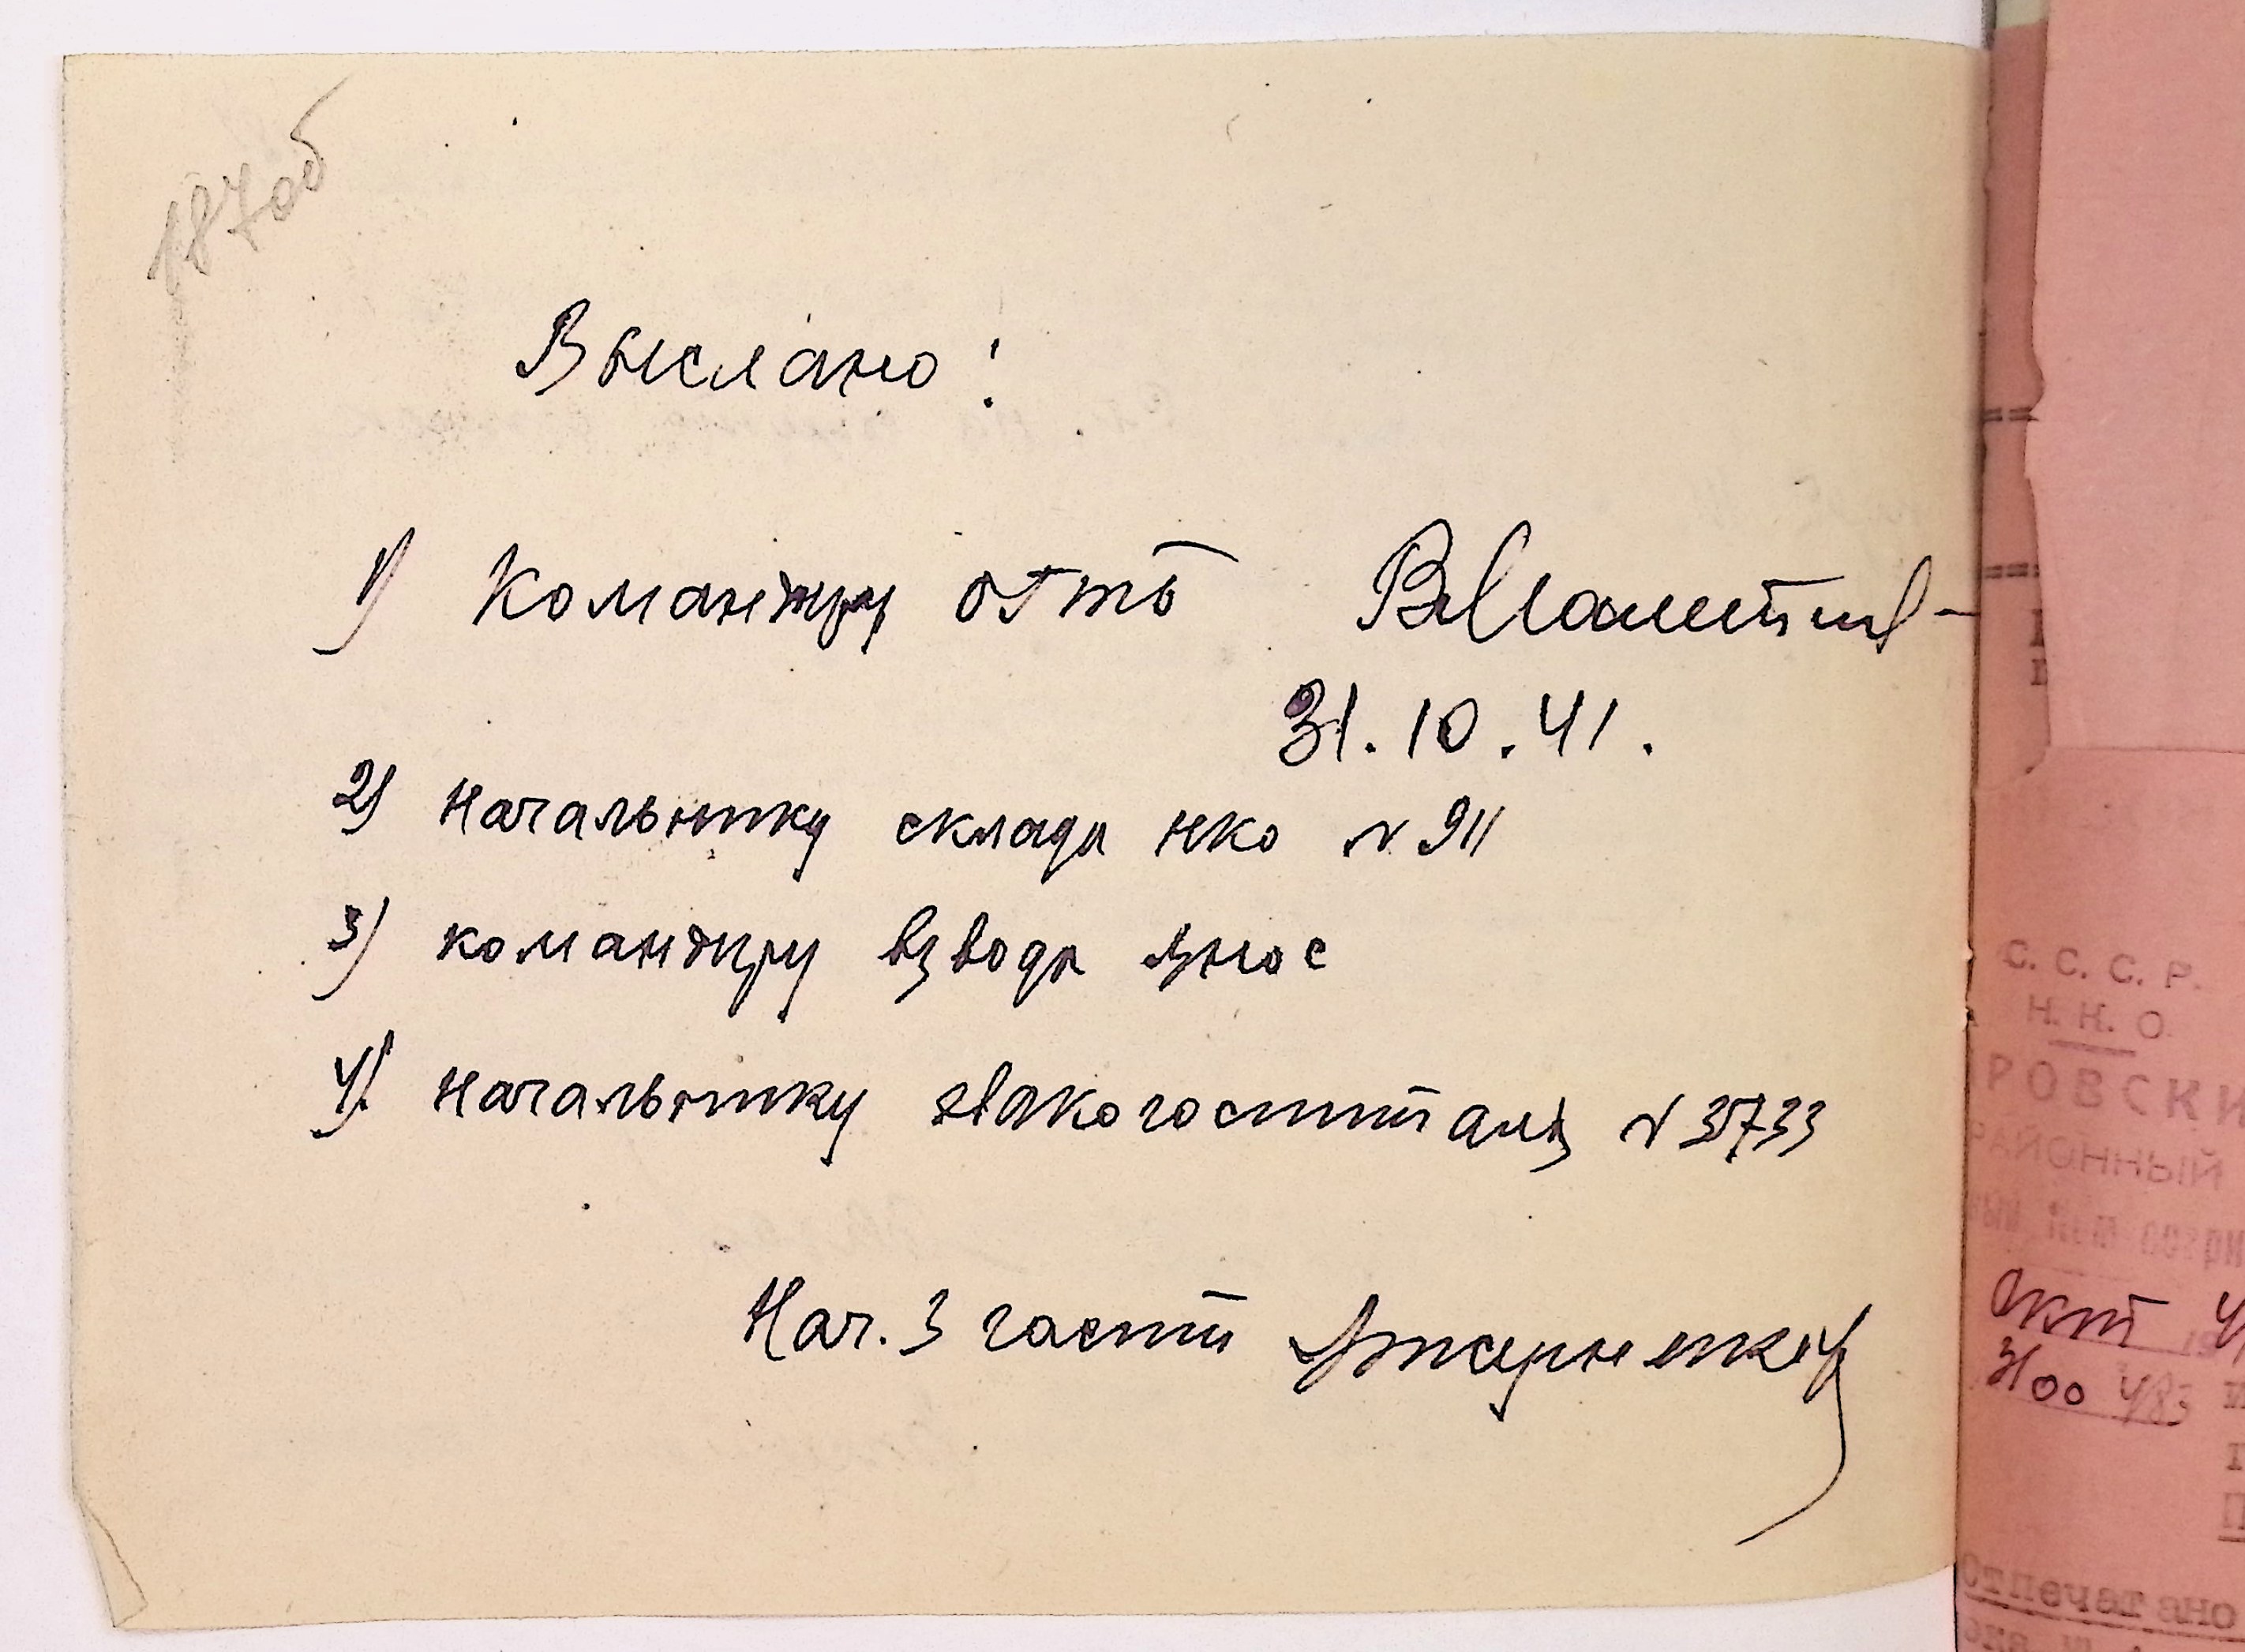 187об
Выслано:
1) Командиру
31.10.41.
2) Начальнику склада нко № 911
3) командиру взвода
4) Начальнику эвакогоспиталя № 3733
Нач. 3 части
С. С. С. Р.
Н. К. О.
РОВСКИ
РАЙОННЫЙ
окт
3100 483
Отпечатано